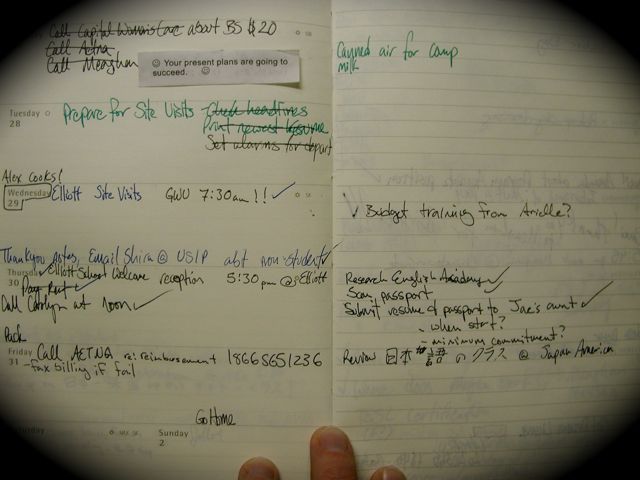 Call Capital Women's Care about BS $20
Call Aetna
Call Meaghan
☺ Your present plans are going to
succeed. ☺
Tuesday
28
Prepare for Site Visits - Check headlines
Print newest resume
Set alarms for depart
Alex cooks!
Wednesday
29
Elliott Site Visits GWU 7:30am!! ✓
Thankyou notes, Email Shira @ USIP abt non-student ✓
Thursday
30
Elliott School Welcome reception 5:30pm @ Elliott
Pay Rent ✓
Call Carolyn at noon ✓
Pack
Friday
31
Call AETNA re: reimbursement 18666651236
- fax billing if fail
Go Home
Sunday
2
Canned air for comp
milk
✓ Budget training from Arielle?
Research English Academy ✓
Scan passport
Submit resume & passport to Jae's aunt ✓
- when start?
- minimum commitment?
Review 日本語のクラス @ Japan American